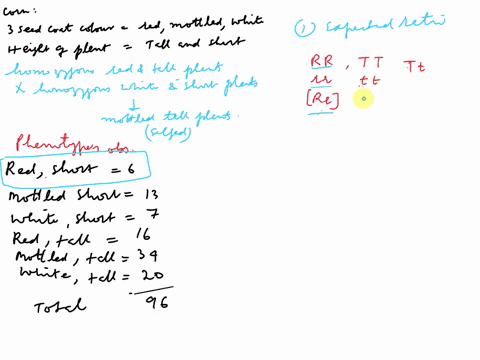 Corn:
3 seed coat colour = red, mottled, white
Height of plant = Tall and short
homozygous red & tall plant
X homozygous white & short plants
↓
mottled tall plants.
(selfed)
Phenotypes obs.
Red, short = 6
Mottled short = 13
White, short = 7
Red, tall = 16
Mottled, tall = 34
White, tall = 20
Total 96
① Expected
RR , TT Tt
rr tt